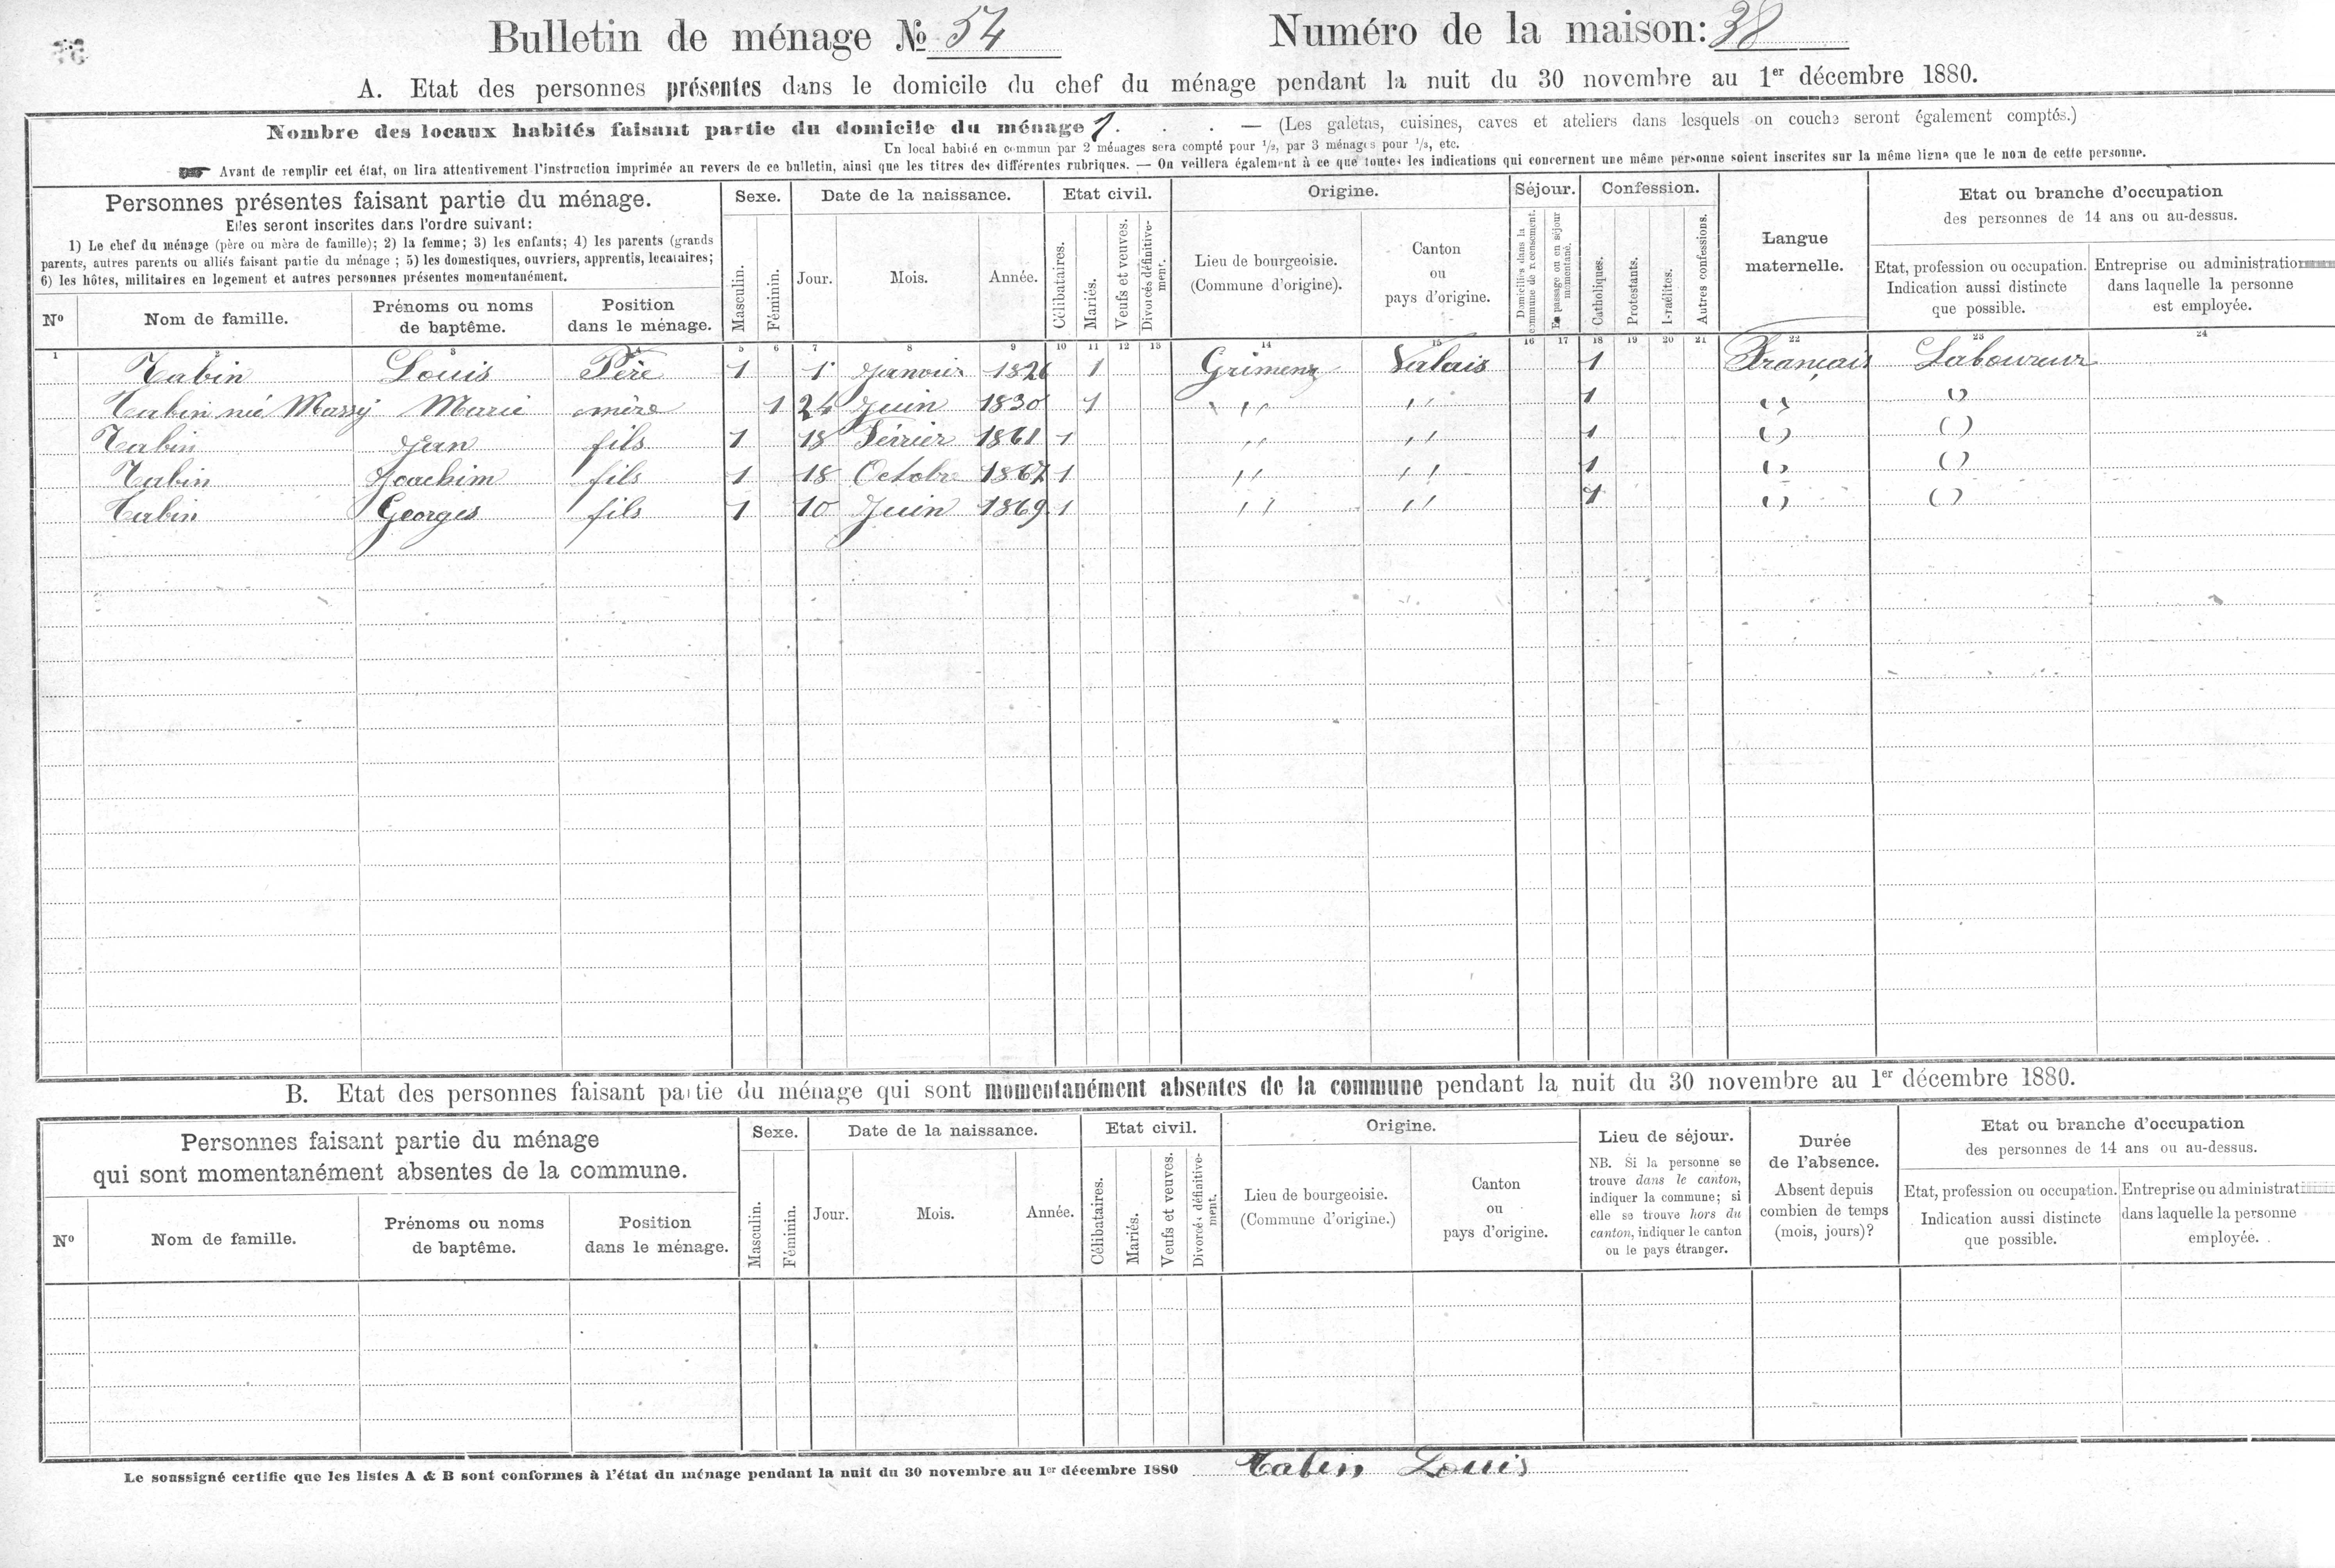 Bulletin de ménage № 54 Numéro de la maison: 38
A. Etat des personnes présentes dans le domicile du chef du ménage pendant la nuit du 30 novembre au 1er décembre 1880.
Nombre des locaux habités faisant partie du domicile du ménage 1. . . — (Les galetas, cuisines, caves et ateliers dans lesquels on couche seront également comptés.)
Un local habité en commun par 2 ménages sera compté pour 1/2, par 3 ménages pour 1/3, etc.
Avant de remplir cet état, on lira attentivement l'instruction imprimée au revers de ce bulletin, ainsi que les titres des différentes rubriques. — On veillera également à ce que toutes les indications qui concernent une même personne soient inscrites sur la même ligne que le nom de cette personne.
Personnes présentes faisant partie du ménage.
Elles seront inscrites dans l'ordre suivant:
1) Le chef du ménage (père ou mère de famille); 2) la femme; 3) les enfants; 4) les parents (grands
parents, autres parents ou alliés faisant partie du ménage ; 5) les domestiques, ouvriers, apprentis, locataires;
6) les hôtes, militaires en logement et autres personnes présentes momentanément.
Nº
Nom de famille.
Prénoms ou noms
de baptême.
Position
dans le ménage.
Sexe.
Masculin.
Féminin.
Date de la naissance.
Jour.
Mois.
Année.
Etat civil.
Célibataires.
Mariés.
Veufs et veuves.
Divorcés définitive-
ment.
Origine.
Lieu de bourgeoisie.
(Commune d'origine).
Canton
ou
pays d'origine.
Séjour.
Domiciliés dans la
commune de recensement.
En passage ou en séjour
momentané.
Confession.
Catholiques.
Protestants.
Israélites.
Autres confessions.
Langue
maternelle.
Etat ou branche d'occupation
des personnes de 14 ans ou au-dessus.
Etat, profession ou occupation.
Indication aussi distincte
que possible.
Entreprise ou administration
dans laquelle la personne
est employée.
1 2 3 4 5 6 7 8 9 10 11 12 13 14 15 16 17 18 19 20 21 22 23 24
Tabin Louis Père 1 1 Janvier 1826 1 Grimenz Valais 1 Français Laboureur
Tabin née Massy Marie mère 1 24 Juin 1830 1 〃 〃 1 〃 〃
Tabin Jean fils 1 18 Février 1861 1 〃 〃 1 〃 〃
Tabin Joachim fils 1 18 Octobre 1867 1 〃 〃 1 〃 〃
Tabin Georges fils 1 10 Juin 1869 1 〃 〃 1 〃 〃
B. Etat des personnes faisant partie du ménage qui sont momentanément absentes de la commune pendant la nuit du 30 novembre au 1er décembre 1880.
Personnes faisant partie du ménage
qui sont momentanément absentes de la commune.
Nº
Nom de famille.
Prénoms ou noms
de baptême.
Position
dans le ménage.
Sexe.
Masculin.
Féminin.
Date de la naissance.
Jour.
Mois.
Année.
Etat civil.
Célibataires.
Mariés.
Veufs et veuves.
Divorcés définitive-
ment.
Origine.
Lieu de bourgeoisie.
(Commune d'origine.)
Canton
ou
pays d'origine.
Lieu de séjour.
NB. Si la personne se
trouve dans le canton,
indiquer la commune; si
elle se trouve hors du
canton, indiquer le canton
ou le pays étranger.
Durée
de l'absence.
Absent depuis
combien de temps
(mois, jours)?
Etat ou branche d'occupation
des personnes de 14 ans ou au-dessus.
Etat, profession ou occupation.
Indication aussi distincte
que possible.
Entreprise ou administrat
dans laquelle la personne
employée.
Le soussigné certifie que les listes A & B sont conformes à l'état du ménage pendant la nuit du 30 novembre au 1er décembre 1880 Tabin Louis